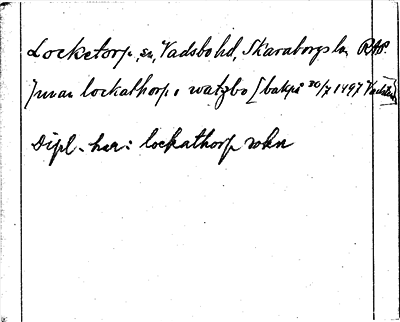 Locketorp, sn, Vadsbo hd, Skaraborgs ln RAP
) man lockathorp i watzbo [bakpå 30/7 1497 Vadstena]
Dipl. har: lockathorp sokn